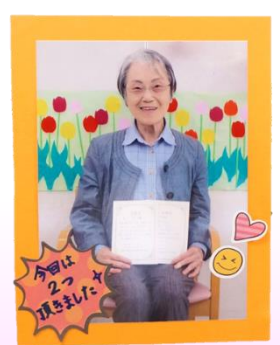 今回は
2つ
頂きました